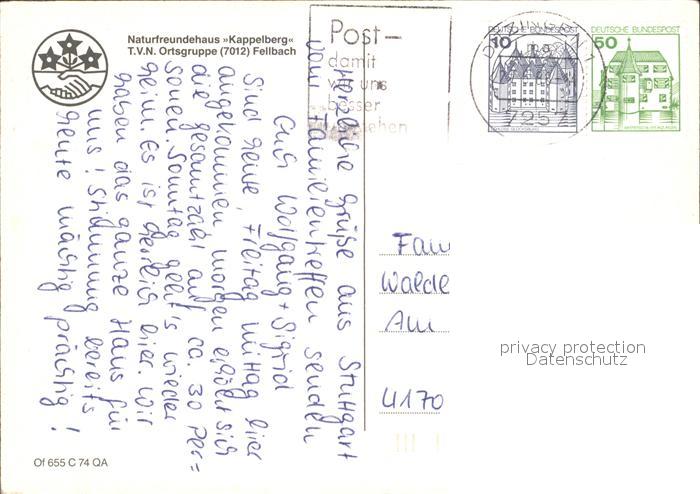 Naturfreundehaus »Kappelberg«
T.V.N. Ortsgruppe (7012) Fellbach
Post-
damit
wir uns
besser
verstehen
10
DEUTSCHE BUNDESPOST
50
DITZINGEN 1
7257
Herzliche Grüße aus Stuttgart
vom Familientreffen senden
Euch Wolfgang + Sigrid
Sind heute, Freitag mittag hier
angekommen, morgen erhöht sich
die gesamtzahl auf ca. 30 Per=
sonen. Sonntag geht's wieder
heim. Es ist herrlich hier. Wir
haben das ganze Haus für
uns! Stimmung bereits
heute mächtig prächtig!
Fam
Walde
Am
4170
privacy protection
Datenschutz
Of 655 C 74 QA